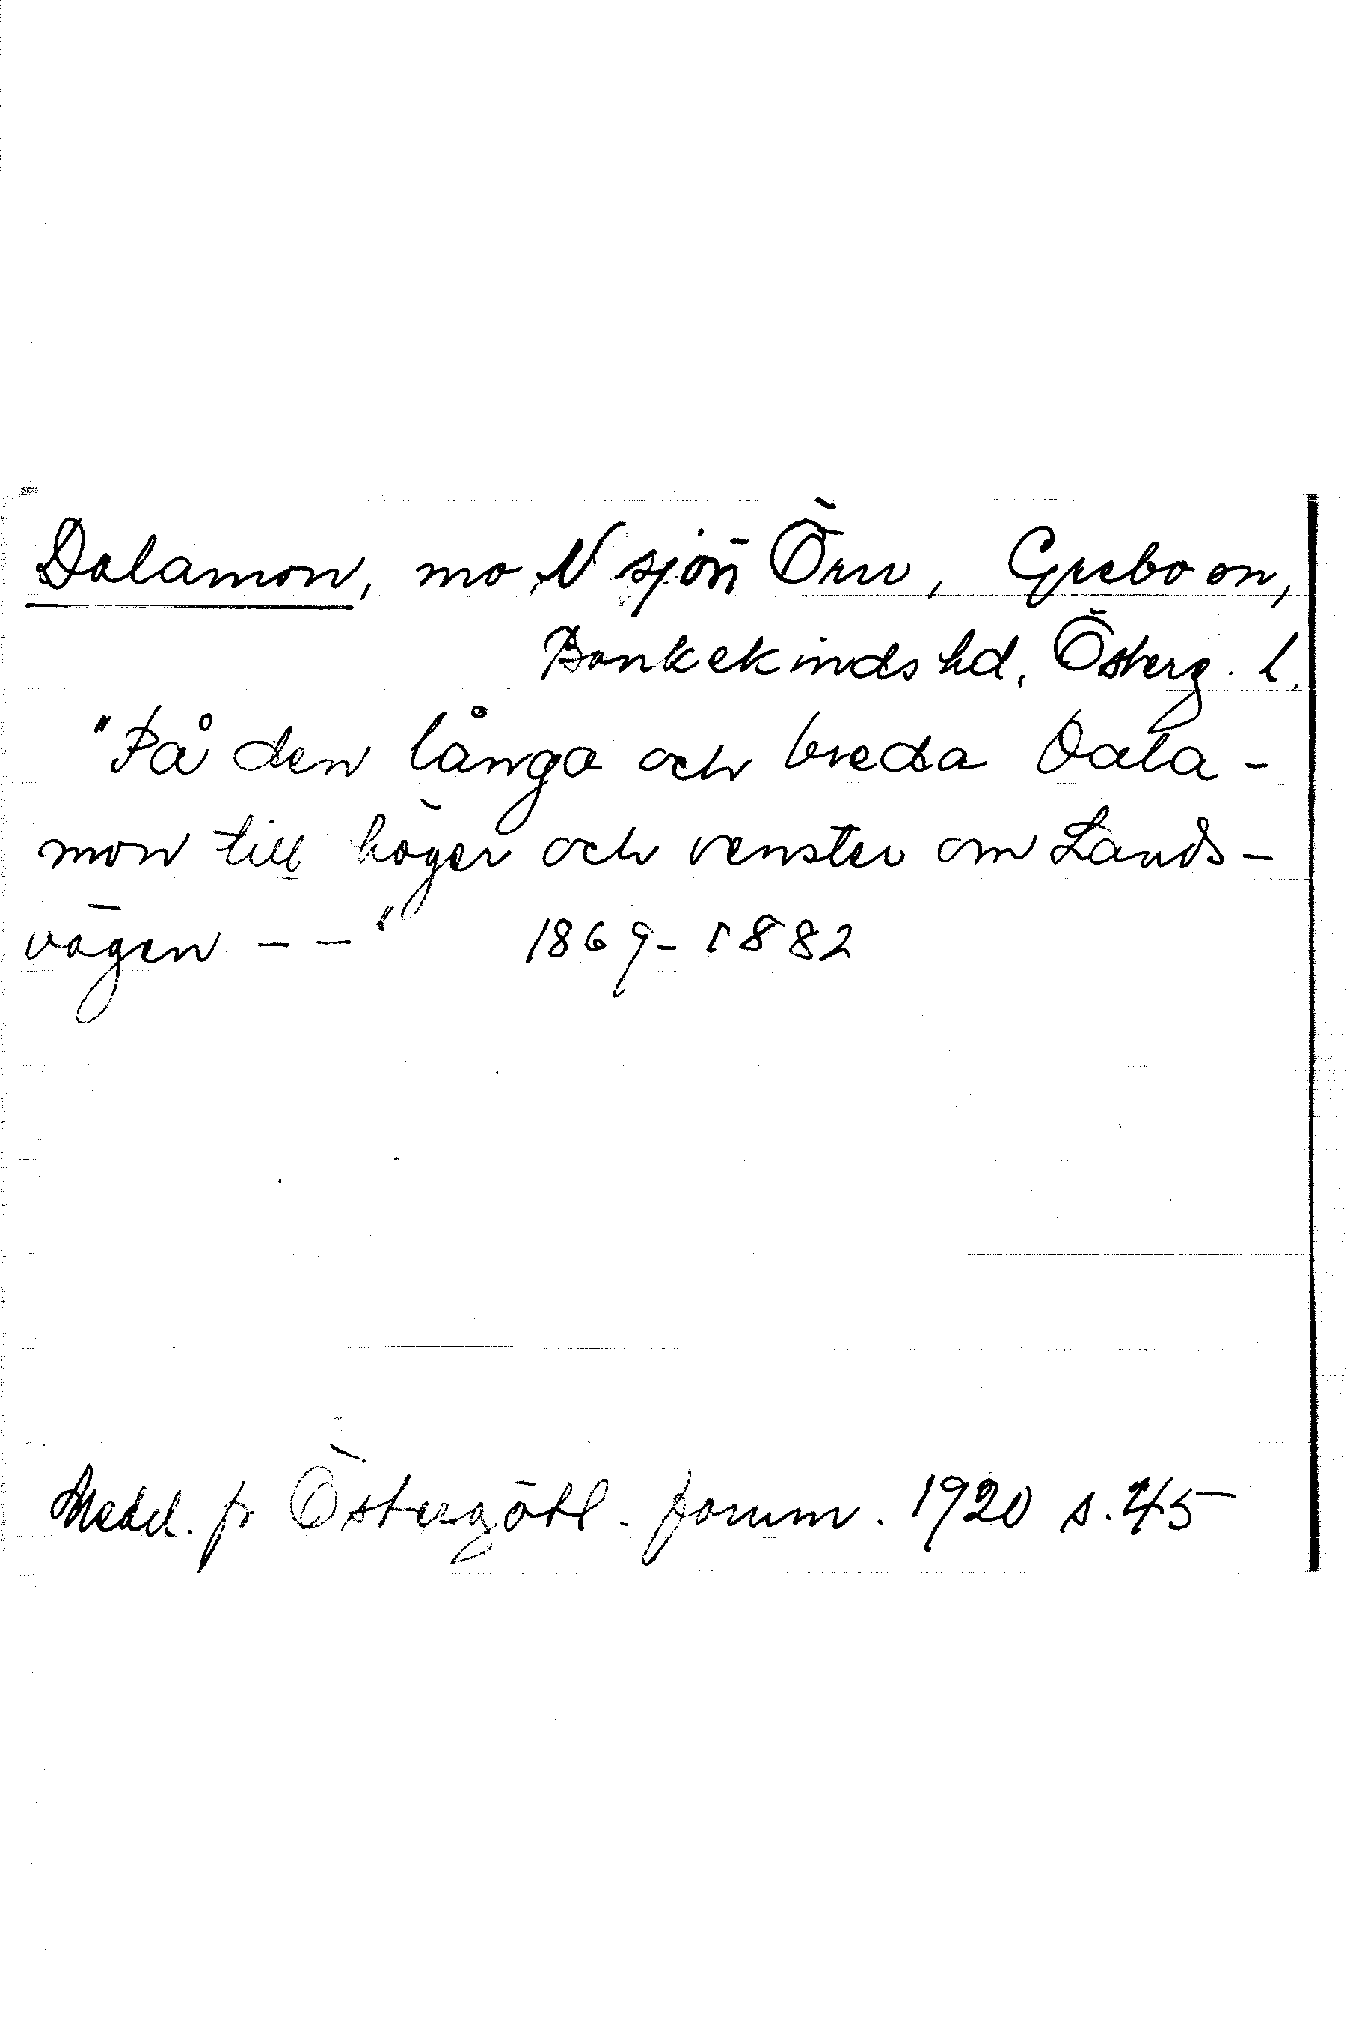 Dalamon, mo N sjön Örn, Grebo sn,
Bankekinds hd, Österg. l.
"På den långa och breda Dala-
mon till höger och venster om Lands-
vägen - - " 1869-1882
Medel. fr Östergötl. fornm. 1920 s. 45